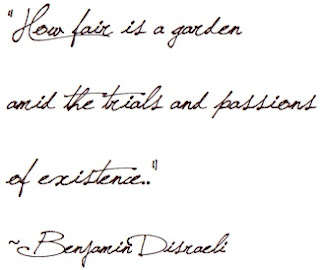 "How fair is a garden
amid the trials and passions
of existence.."
~Benjamin Disraeli